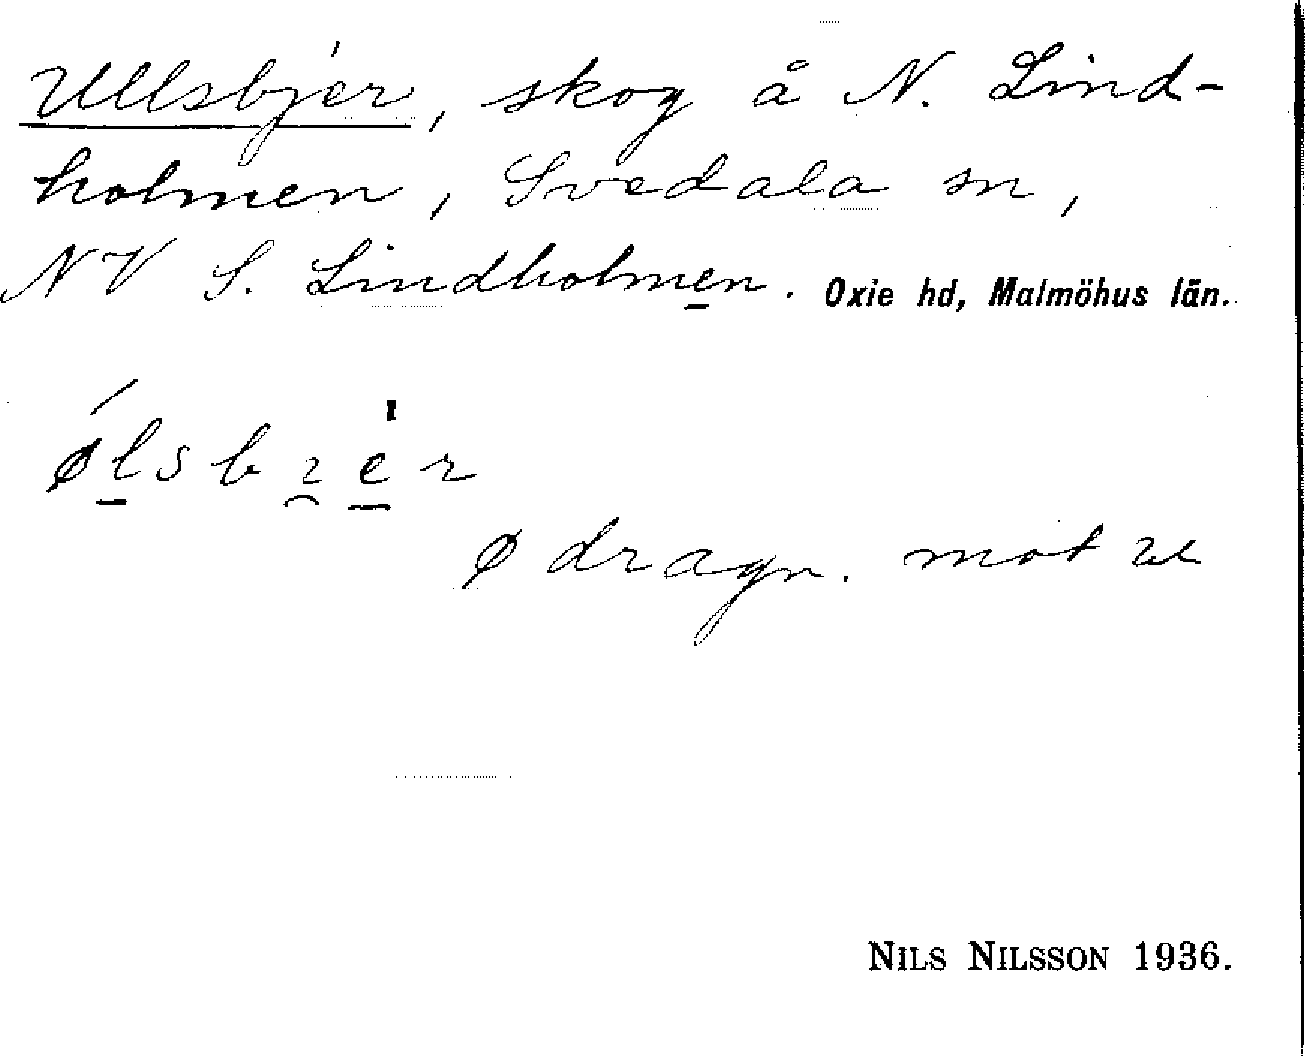 Ullsbjer, skog å N. Lind-
holmen, Svedala sn,
NV S. Lindholmen. Oxie hd, Malmöhus län.
ølsbier
ø dragn. mot æ
NILS NILSSON 1936.